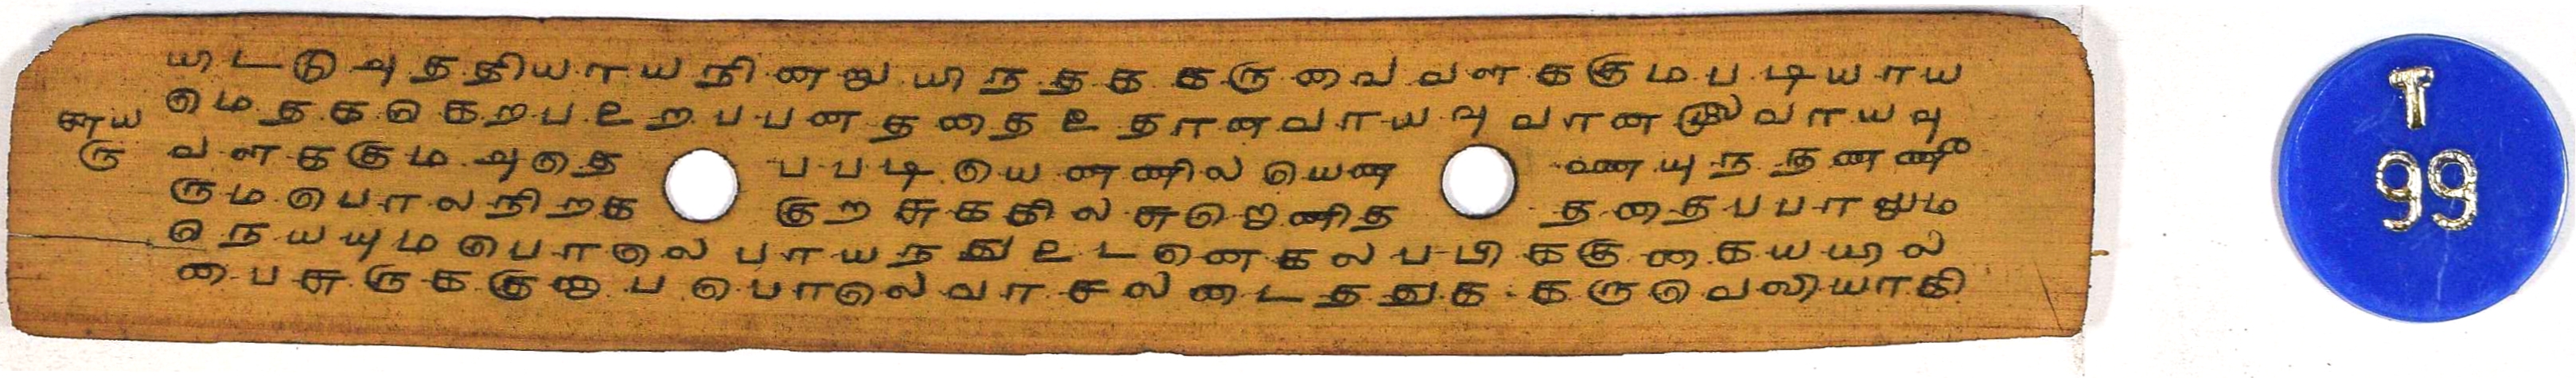 யிடடுஅததியாயநினறுயிநதககருவைவளககுமபடியாய
மெதககெறபஉறபபனததைஉதானவாயவுவானஇவாயவு
வளககுமஅதெத பபடியெணணிலயெண ணயுநநணணீ
ருமபொலநிறக குறசுககிலசுறெணித ததைபபாலும
நெயயுமபொலெபாயநதுஉடனெகலபபிககுகையயில
பைசுருககுஙபபொலெவாசலடைததுககருவெலியாகி
சாய
ரு
T
99